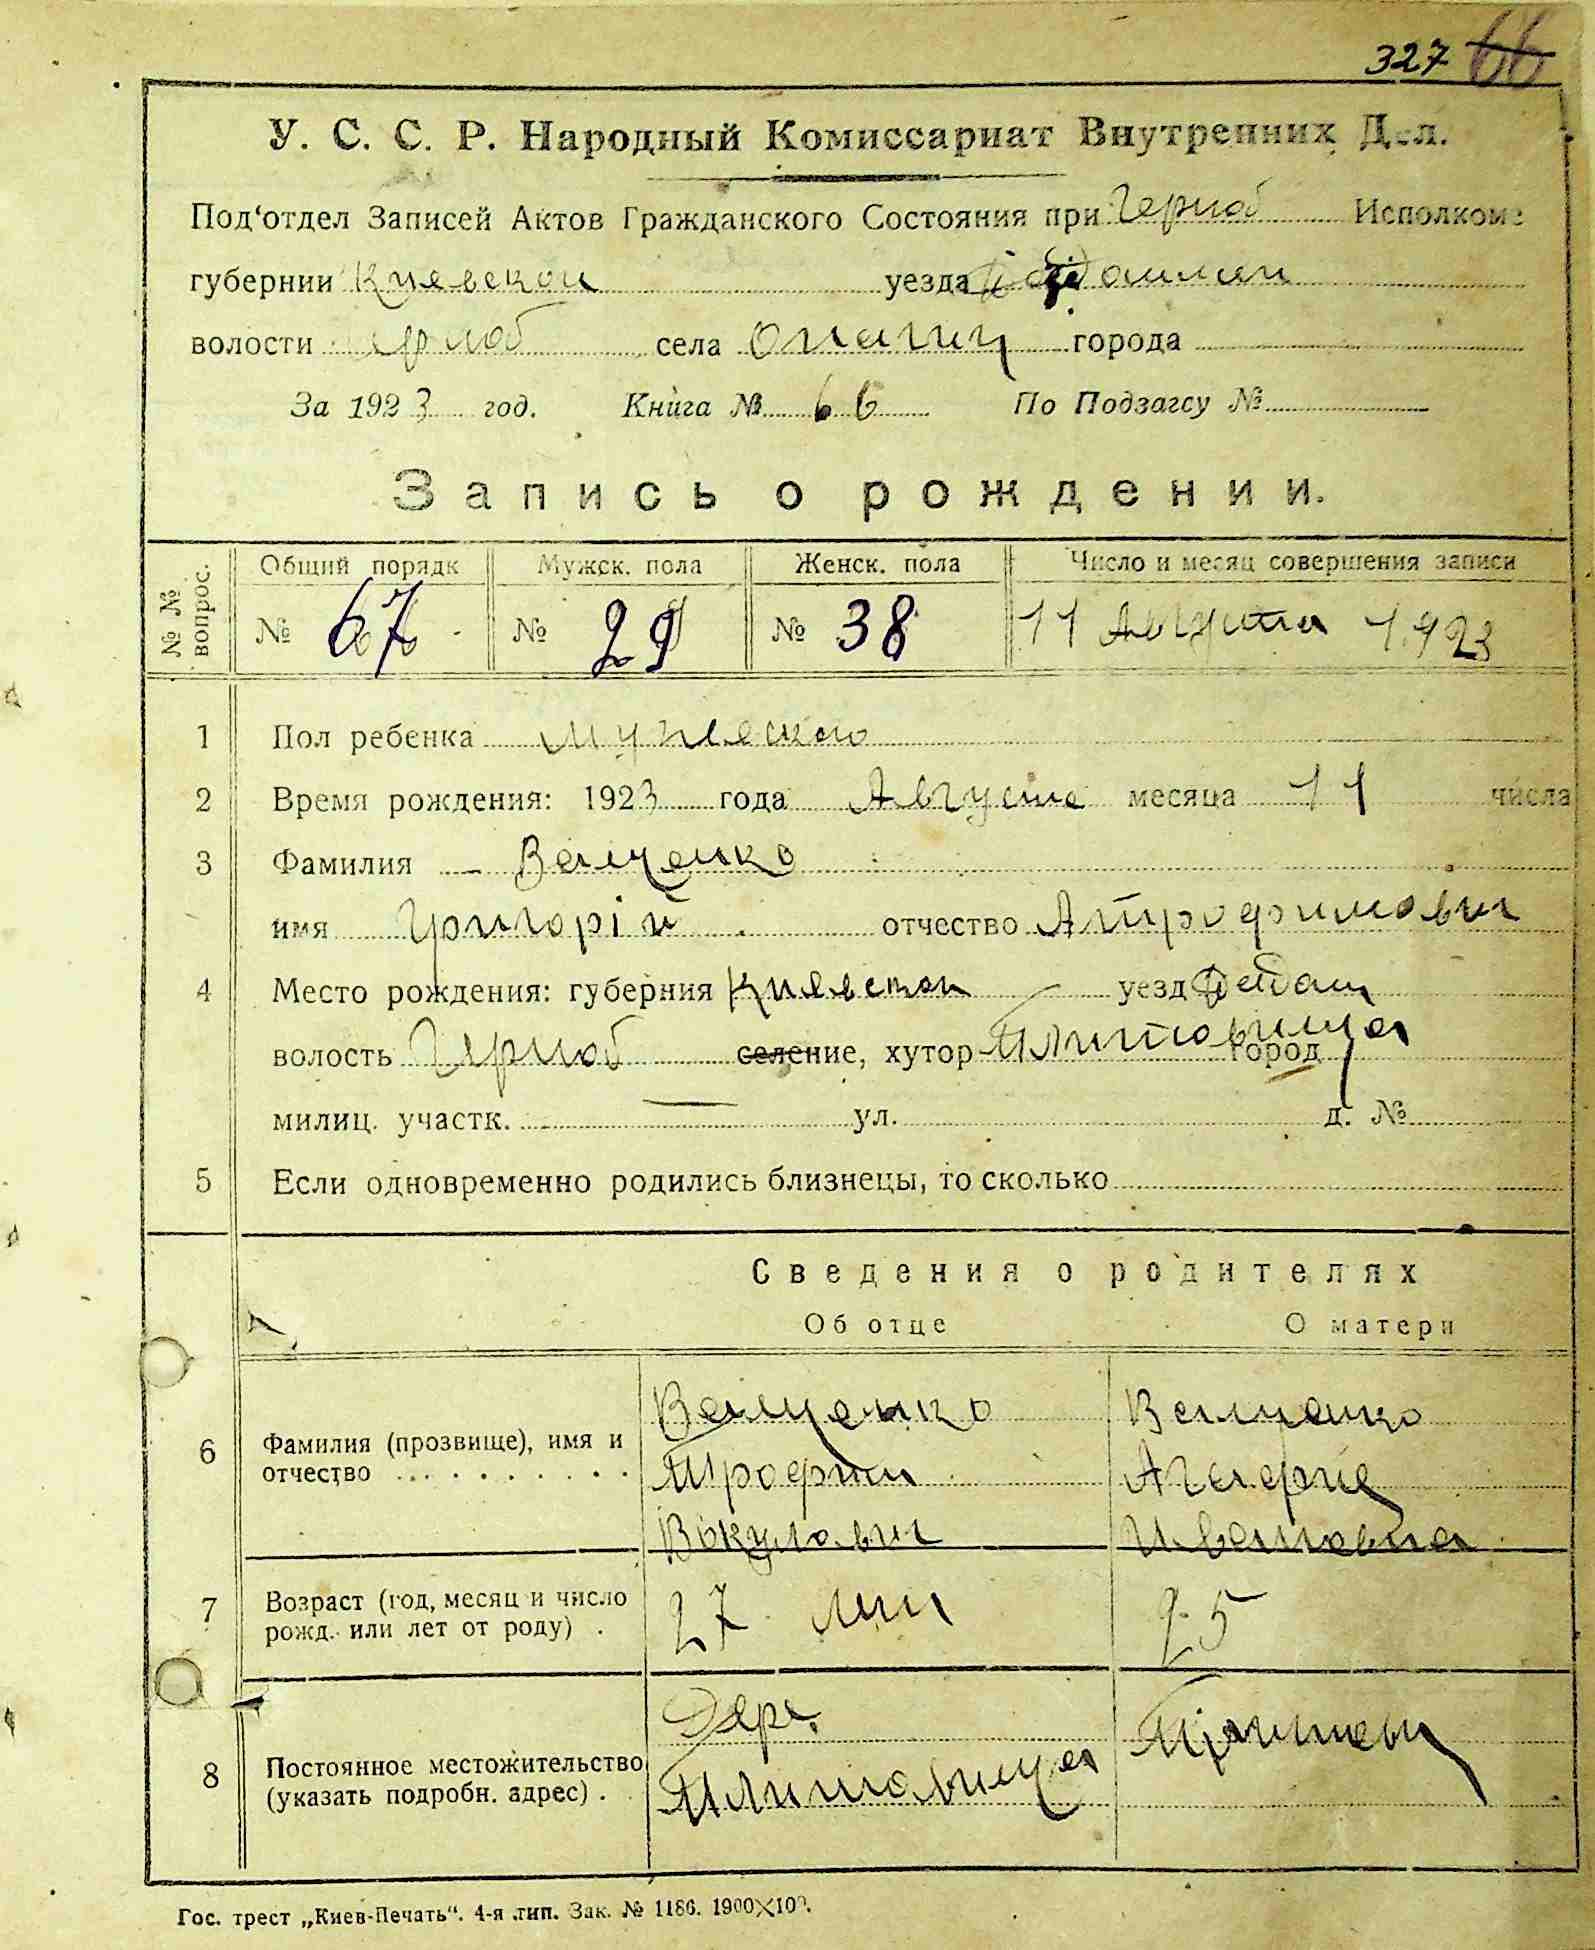 327 66
У. С. С. Р. Народный Комиссариат Внутренних Дел.
Под'отдел Записей Актов Гражданского Состояния при Черноб Исполкоме
губернии Киевскои уезда
волости ерноб села Опачич города
За 1923 год. Книга № 66 По Подзагсу №
Запись о рождении.
№ № вопрос. Общий порядк Мужск. пола Женск. пола Число и месяц совершения записи
№ 67 № 29 № 38 11 Августа 1923
1 Пол ребенка мужеского
2 Время рождения: 1923 года Августа месяца 11 числа
3 Фамилия Ващенко
имя Григорій отчество Атрофимович
4 Место рождения: губерния Киевской уезд
волость Черноб селение, хутор Плитовища город
милиц. участк. — ул. д. №
5 Если одновременно родились близнецы, то сколько
Сведения о родителях
Об отце О матери
Ващенко Ващенко
6 Фамилия (прозвище), имя и
отчество Трофим
Вокулович Ивановна
7 Возраст (год, месяц и число
рожд. или лет от роду) . 27 лит 25
Дер.
8 Постоянное местожительство
(указать подробн. адрес) . Плитовища
Гос. трест „Киев-Печать“. 4-я тип. Зак. № 1186. 1900×100.